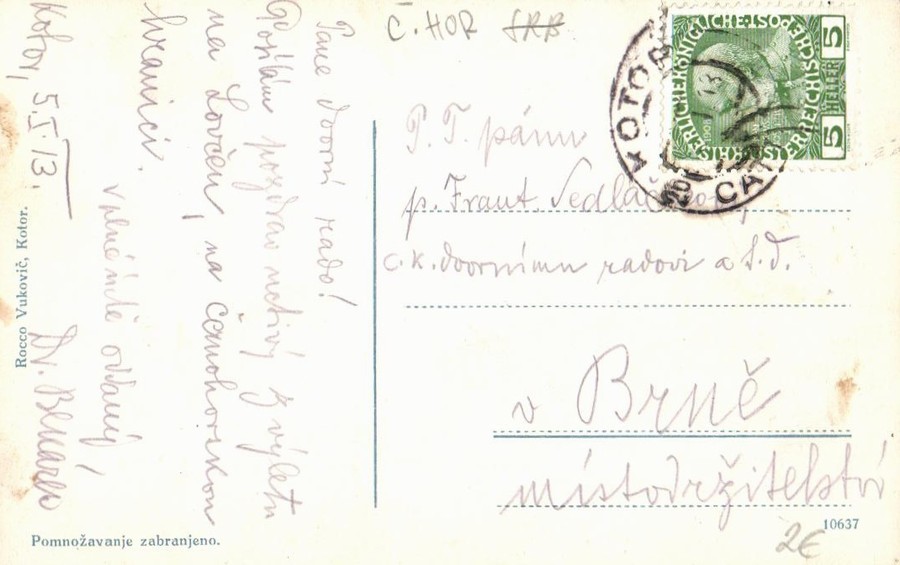 Č. HOR SRB
Pane dvorní rado!
Posílám pozdrav uctivý z výletu
na Lovčen, na černohorskou
hranici.
v plné úctě oddaný
Kotor, 5.I.13.
P. T. pánu
p. Frant. Sedláčkovi,
c. k. dvornímu radovi a t. d.
v Brně
místodržitelství
ÖSTERREICHISCHE POST
5 HELLER 5
KOTOR
Rocco Vuković, Kotor.
Pomnožavanje zabranjeno.
10637
2€